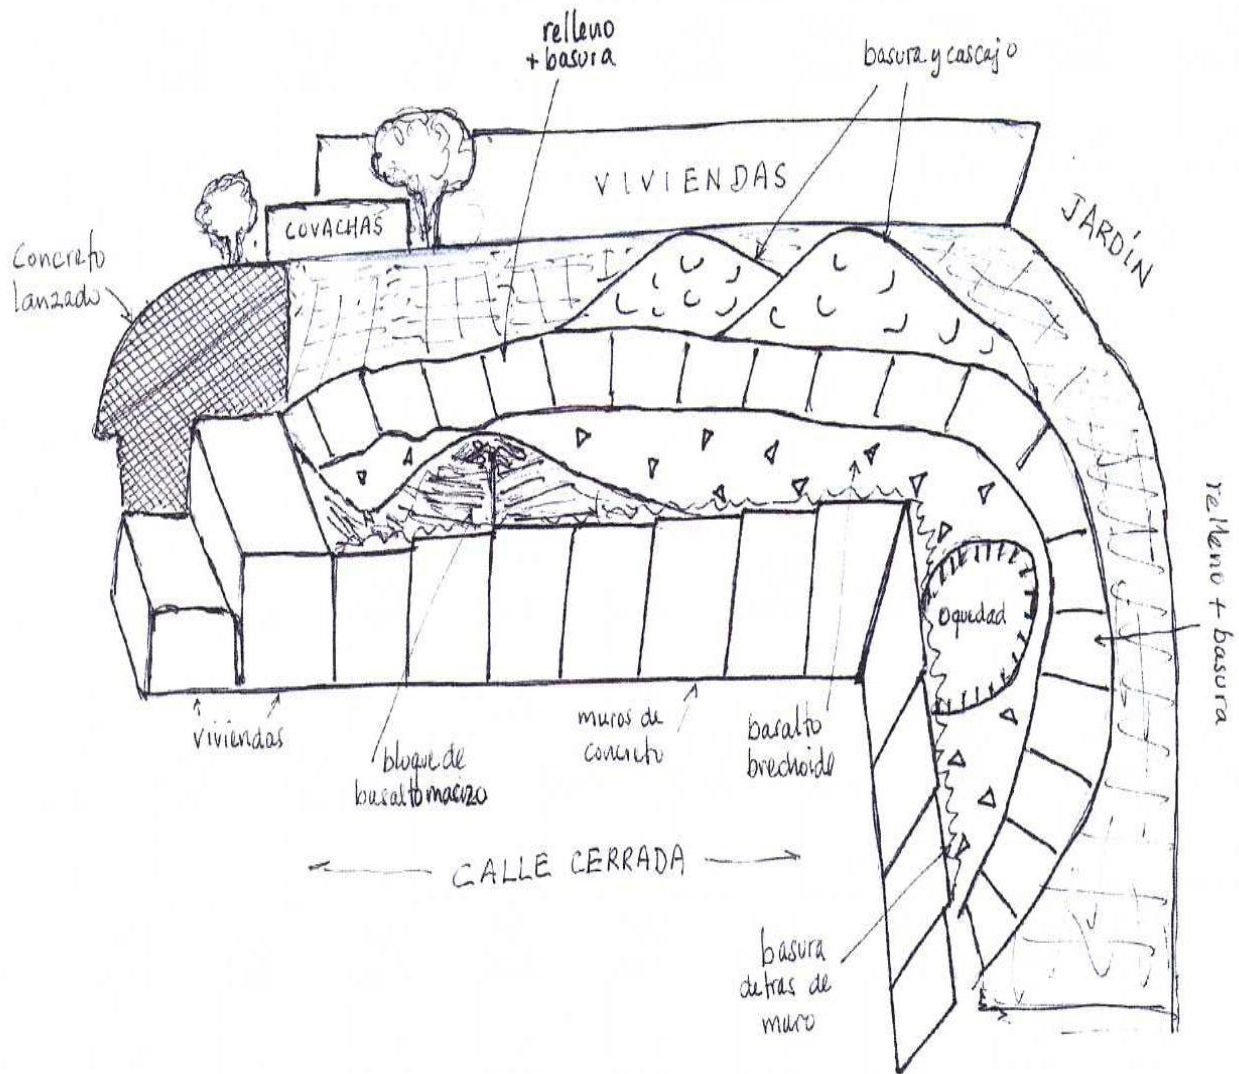 relleno
+ basura
basura y cascajo
VIVIENDAS
COVACHAS
JARDÍN
Concreto
lanzado
Oquedad
relleno + basura
viviendas
bloque de
basalto macizo
muros de
concreto
basalto
brechoide
CALLE CERRADA
basura
detras de
muro